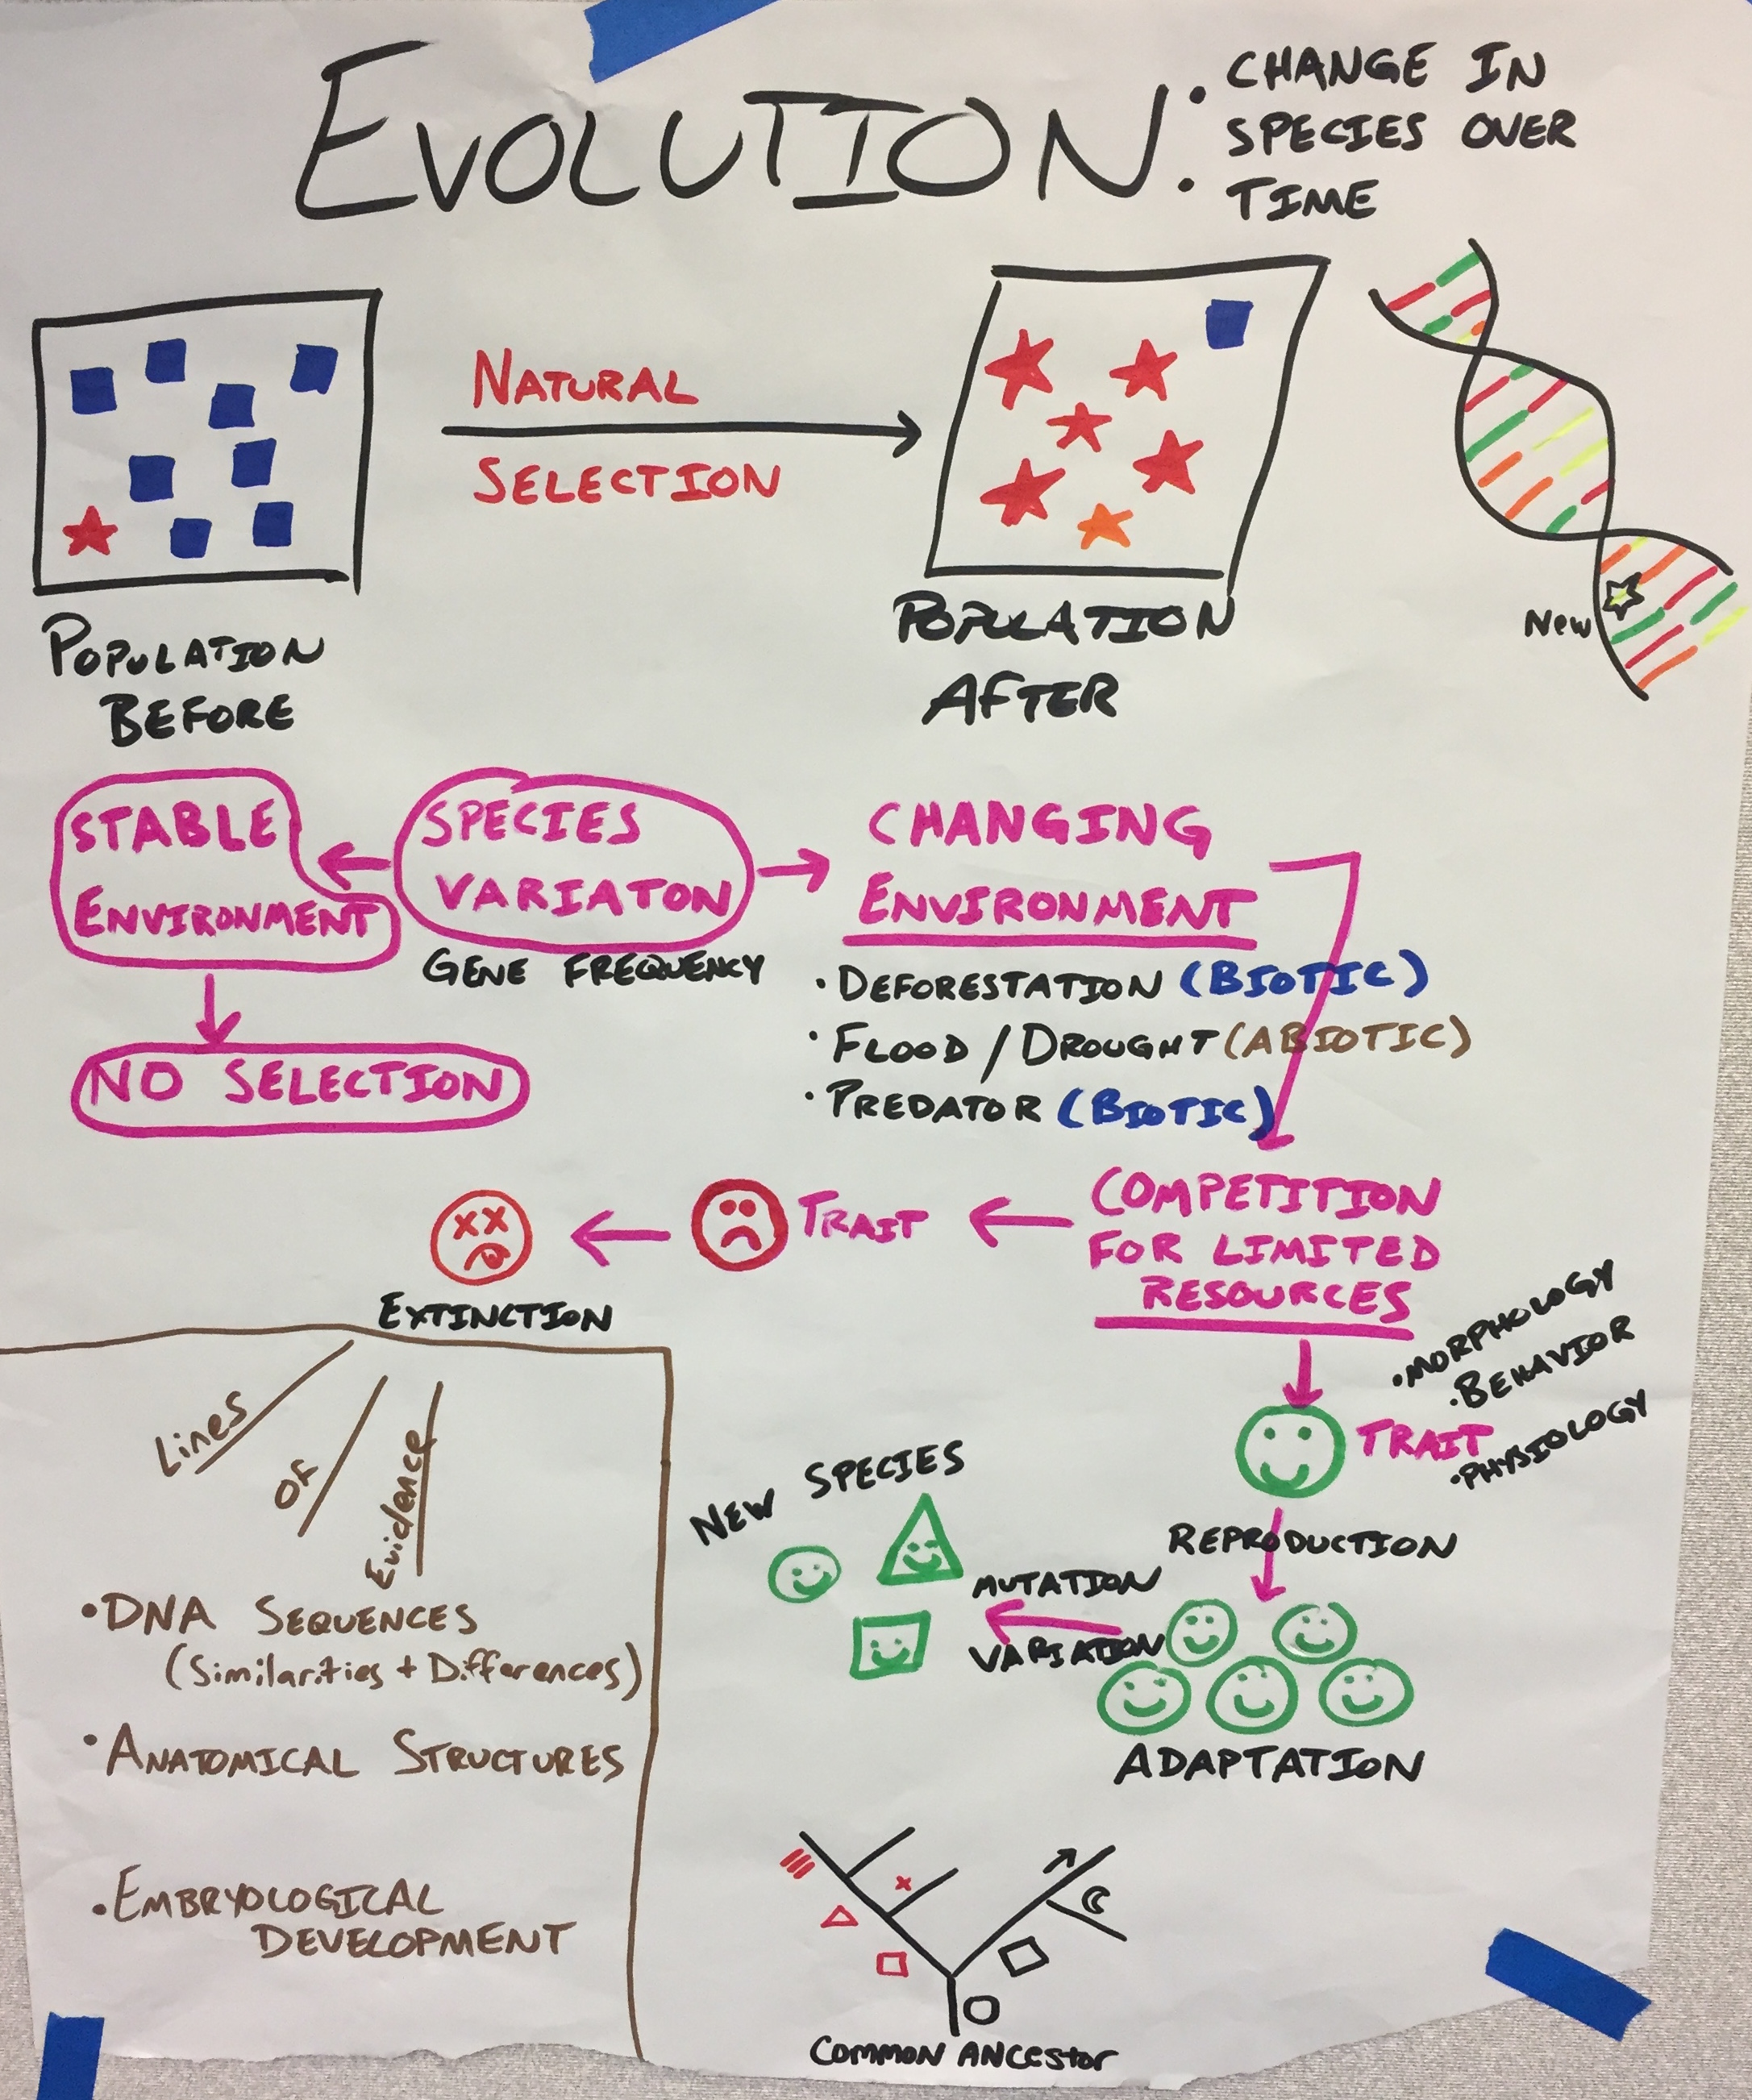 EVOLUTION:
CHANGE IN
SPECIES OVER
TIME
NATURAL
SELECTION
POPULATION
BEFORE
POPULATION
AFTER
New
STABLE
ENVIRONMENT
SPECIES
VARIATON
GENE FREQUENCY
CHANGING
ENVIRONMENT
• DEFORESTATION (BIOTIC)
• FLOOD / DROUGHT (ABIOTIC)
• PREDATOR (BIOTIC)
NO SELECTION
COMPETITION
FOR LIMITED
RESOURCES
TRAIT
EXTINCTION
• MORPHOLOGY
• BEHAVIOR
TRAIT
• PHYSIOLOGY
REPRODUCTION
ADAPTATION
MUTATION
VARIATION
NEW SPECIES
Lines
Of
Evidence
• DNA SEQUENCES
(Similarities + Differences)
• ANATOMICAL STRUCTURES
• EMBRYOLOGICAL
DEVELOPMENT
COMMON ANCESTOR